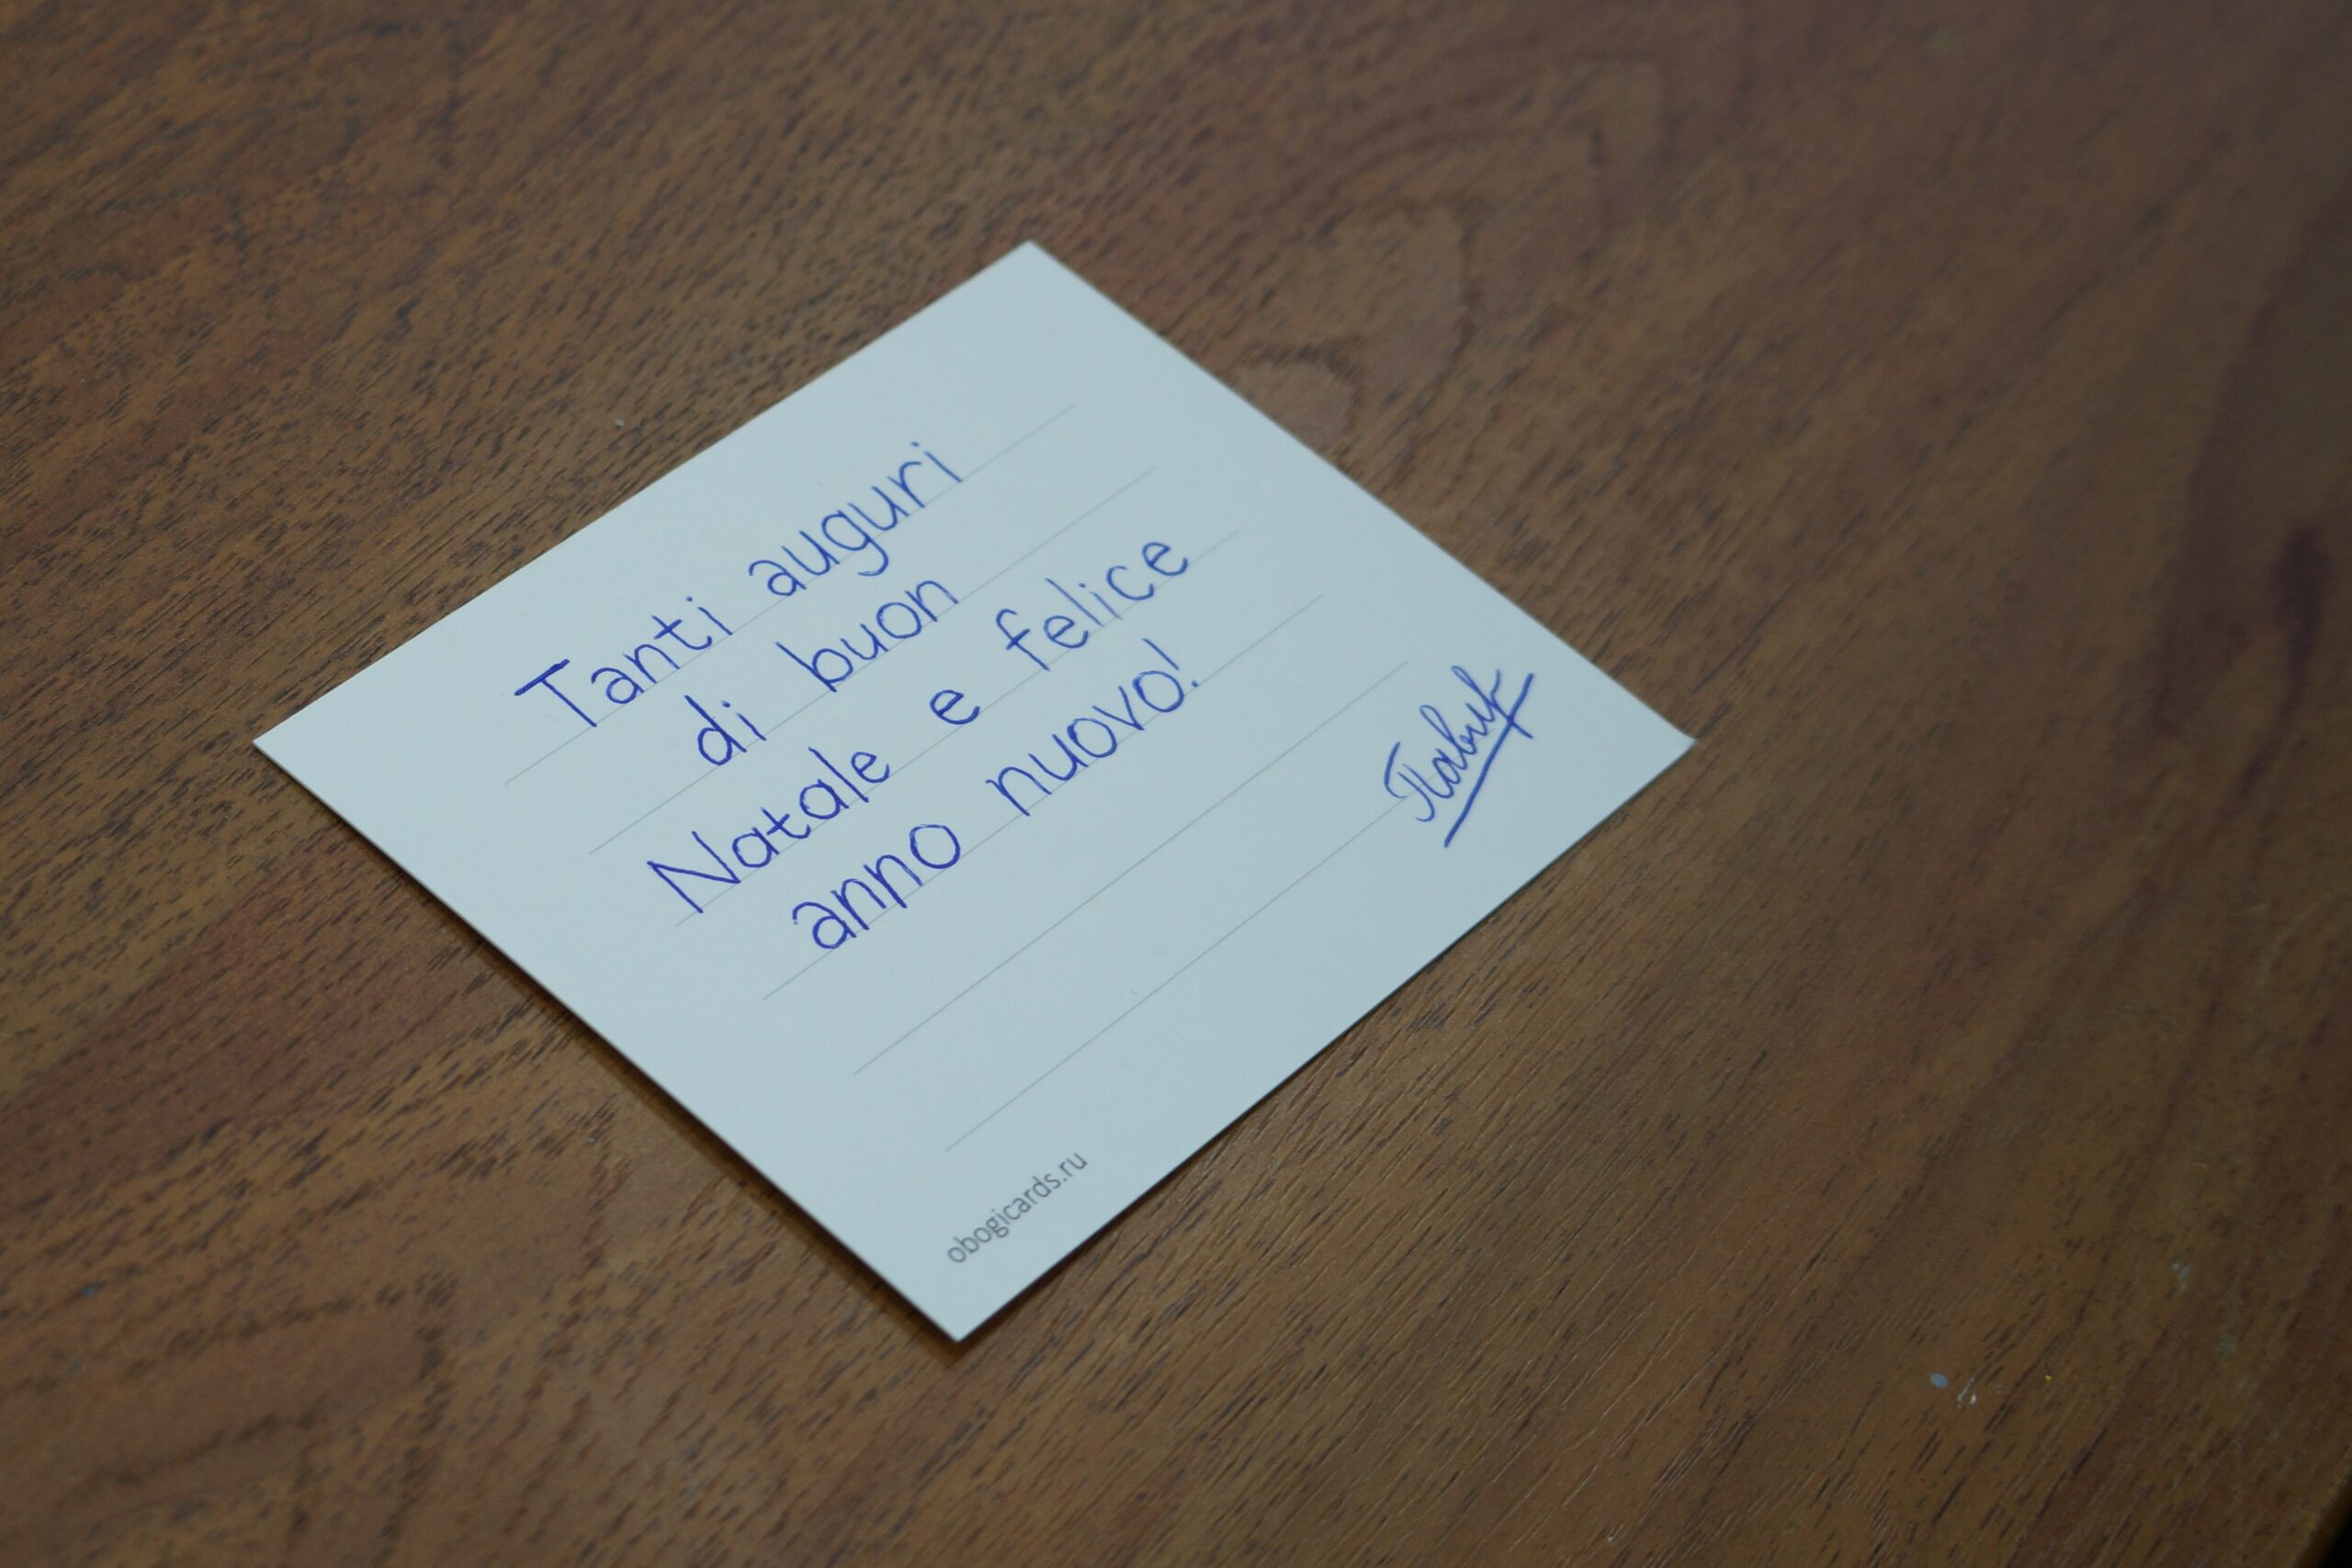 Tanti auguri
di buon
Natale e felice
anno nuovo!
obogicards.ru